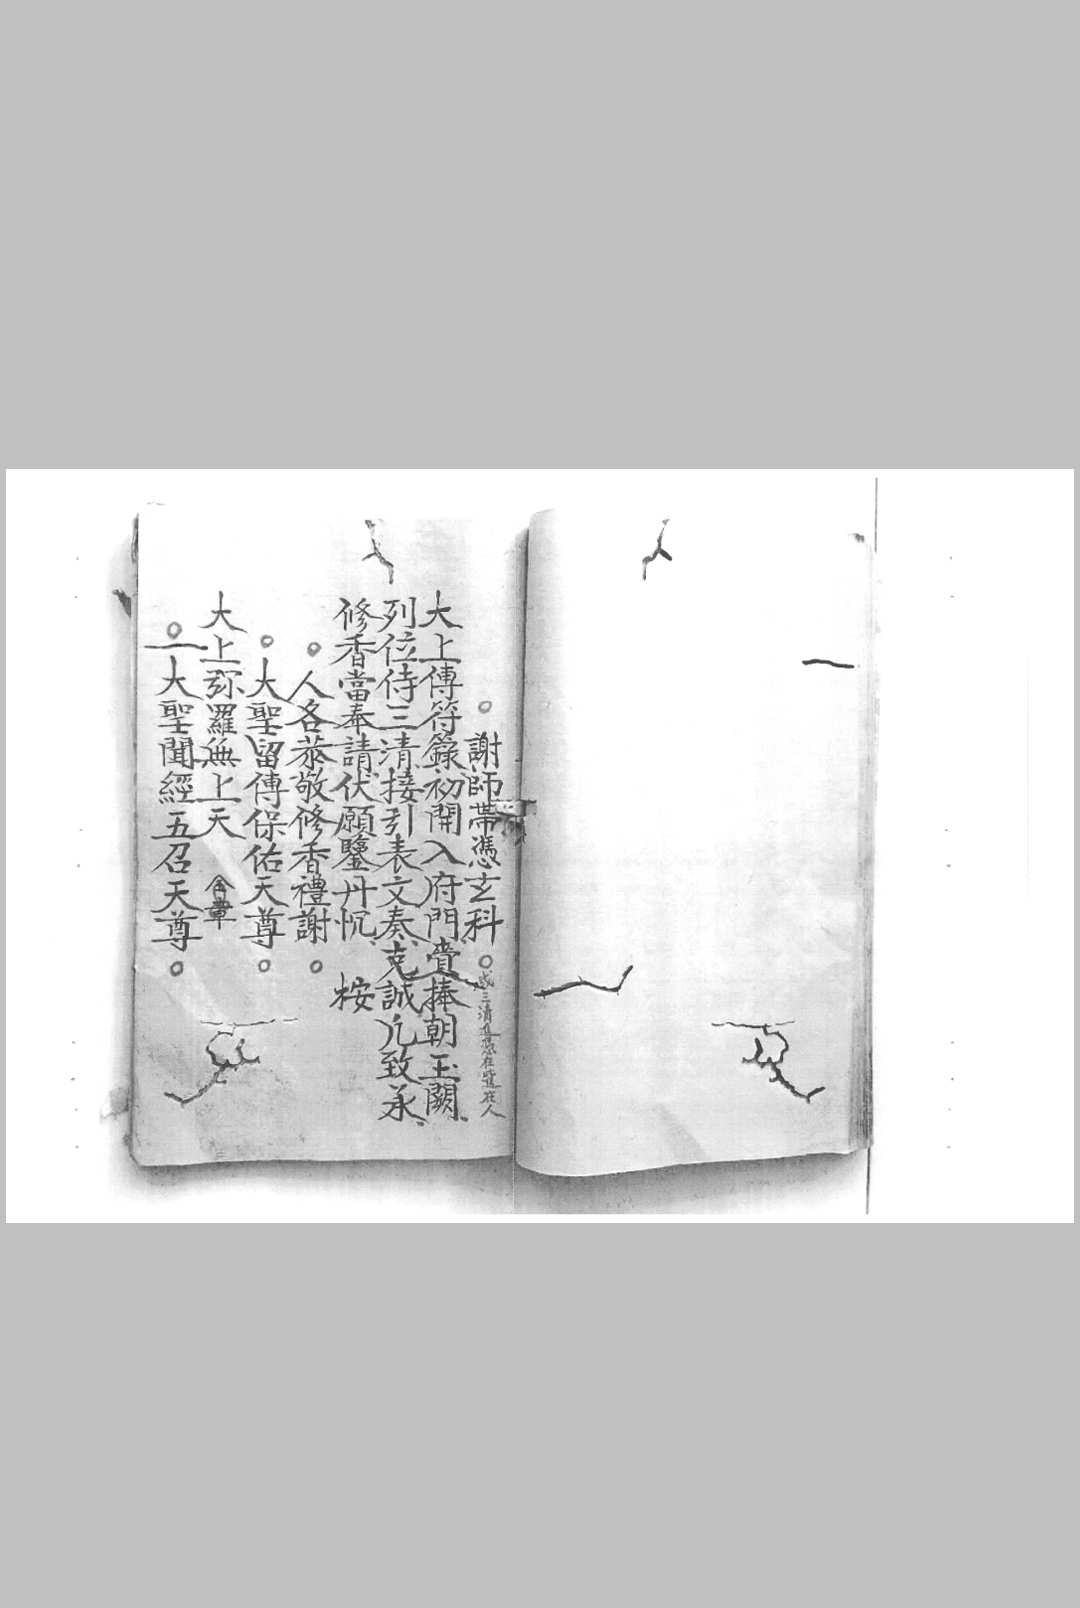 ○謝師帶憑玄科○
大上傳符籙初開入府門賫捧朝玉闕
列位侍三清接引表文奏克誠凢致承
修香當奉請伏願鑒丹忱 桉
○人各恭敬修香禮謝○
○大聖留傳保佑天尊○
大上弥羅無上天 含章
○一大聖聞經五召天尊○